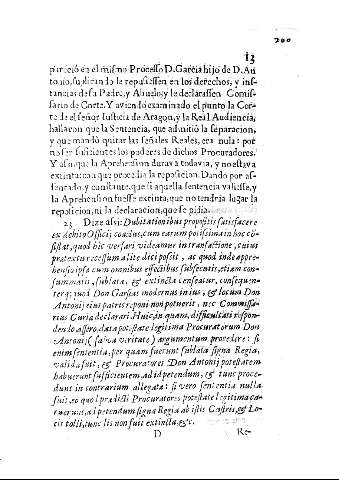 200
13
pareciò en el mismo Processo D. Garcia hijo de D. An
tonio, suplicando le repusiessen en los derechos, y ins-
tancias de su Padre, y Abuelo, y le declarassen Comis-
sario de Corte. Y aviendo examinado el punto la Cor-
te del señor Iusticia de Aragon, y la Real Audiencia,
hallaron que la Sentencia, que admitiò la separacion,
y que mandò quitar las señales Reales, era nula: por
no ser suficientes los poderes de dichos Procuradores.
Y assi, que la Aprehension durava todavia, y no estava
extinta con que procedia la reposicion. Dando por as-
sentado, y constante, que si aquella sentencia valiesse, y
la Aprehension fuesse extinta, que no tendria lugar la
reposicion, ni la declaracion, que se pidia.
23 Dize assi: Dubitationibus propositis satisfacere
ex debito Officij cõacius, cum earum potissima in hoc cõ-
sistat, quod hic versari videamur in transactione, cuius
pratextu recessum à lite dici possit, ac quod inde appre-
hensio ipsa cum omnibus effectibus subsecutis, etiam con-
summatis, sublata, & extincta censeatur, consequen-
terq; quod Don Garsias modernus in ius, & locum Don
Antonij eius patris reponi non potuerit, nec Commissa-
rius Curiæ declarari. Huic, in quam, difficultati respon-
dendo assero, data potestate legitima Procuratorum Don
Antonij (salva veritate) argumentum procedere: si
enim sententia, per quam fuerunt sublata signa Regia,
valida fuit, & Procuratores Don Antonij potestatem
habuerunt sufficientem, ad id petendum, & tunc proce-
dunt in contrarium allegata: si vero sententia nulla
fuit, eo quod prædicti Procuratores potestate legitima ca-
ruerunt, ad petendum signa Regia ab istis Castris, & Lo-
cis tolli, tunc lis non fuit extincta, &c.
D
Re-